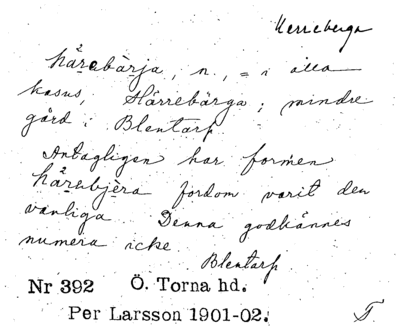 Herreberga
hä̀rabä̀rja, n., = i alla
kasus, Härrebärga; mindre
gård i Blentarp
Antagligen har formen
hä̀rabjèra fordom varit den
vanliga Denna godkännes
numera icke
Blentarp
Nr 392 Ö. Torna hd.
Per Larsson 1901-02. F.